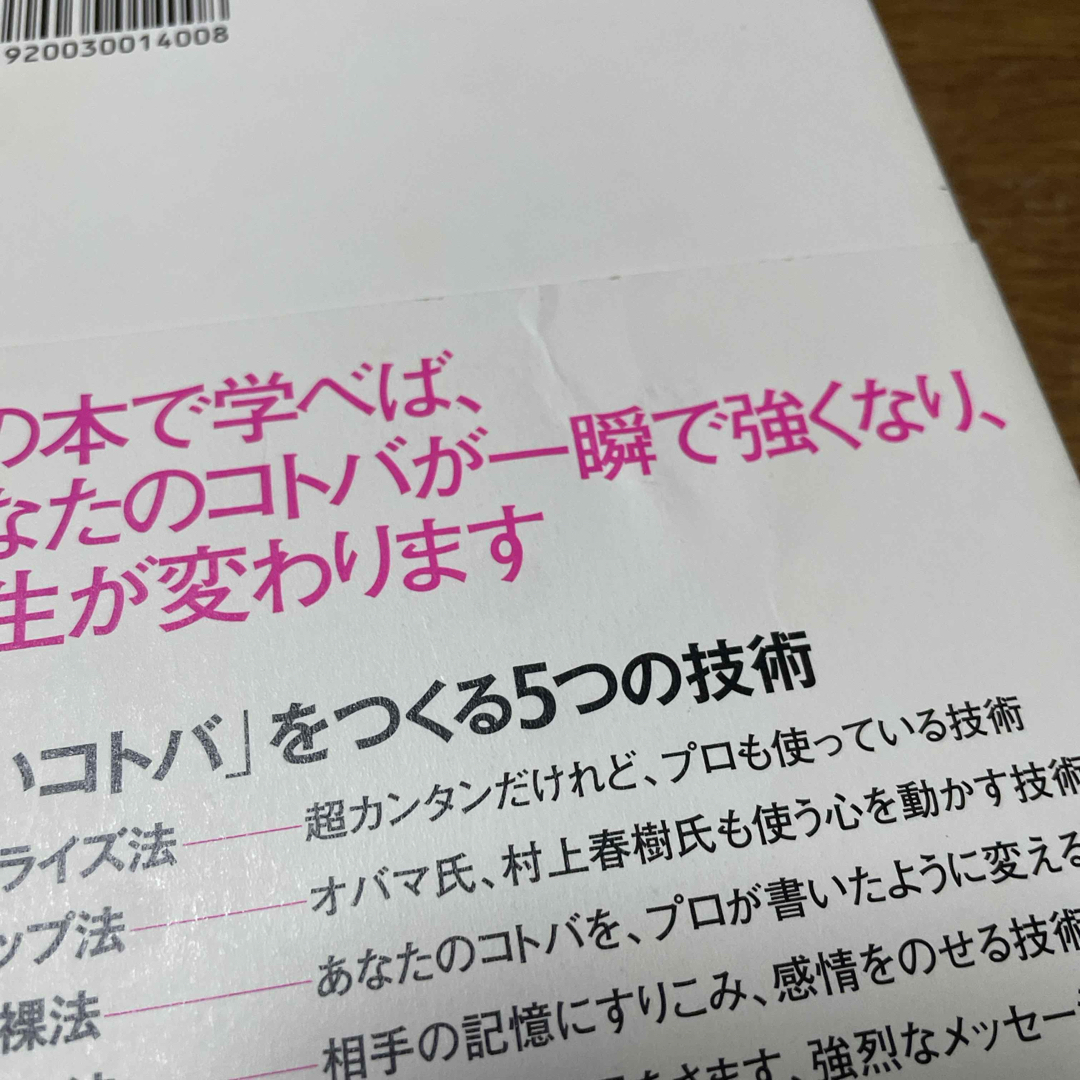 920030014008
の本で学べば、
なたのコトバが一瞬で強くなり、
生が変わります
いコトバ」をつくる5つの技術
ライズ法 超カンタンだけれど、プロも使っている技術
ップ法 オバマ氏、村上春樹氏も使う心を動かす技術
裸法 あなたのコトバを、プロが書いたように変える
相手の記憶にすりこみ、感情をのせる技術
さます、強烈なメッセー